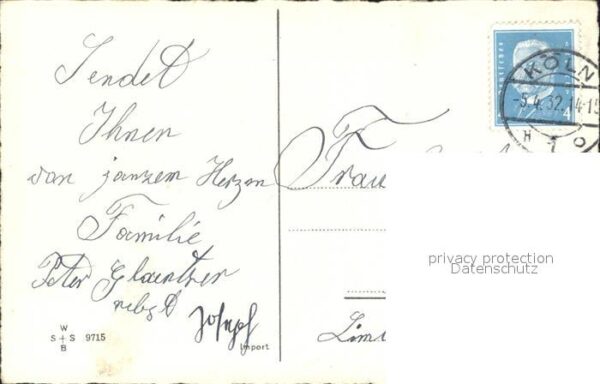 Sendet
Ihnen
von janzem Herzen
Familie
Peter
nebst
Josepf
W
S + S 9715
B
Import
Frau
KÖLN
-5.4.32.14-15
H 1 o
4
privacy protection
Datenschutz